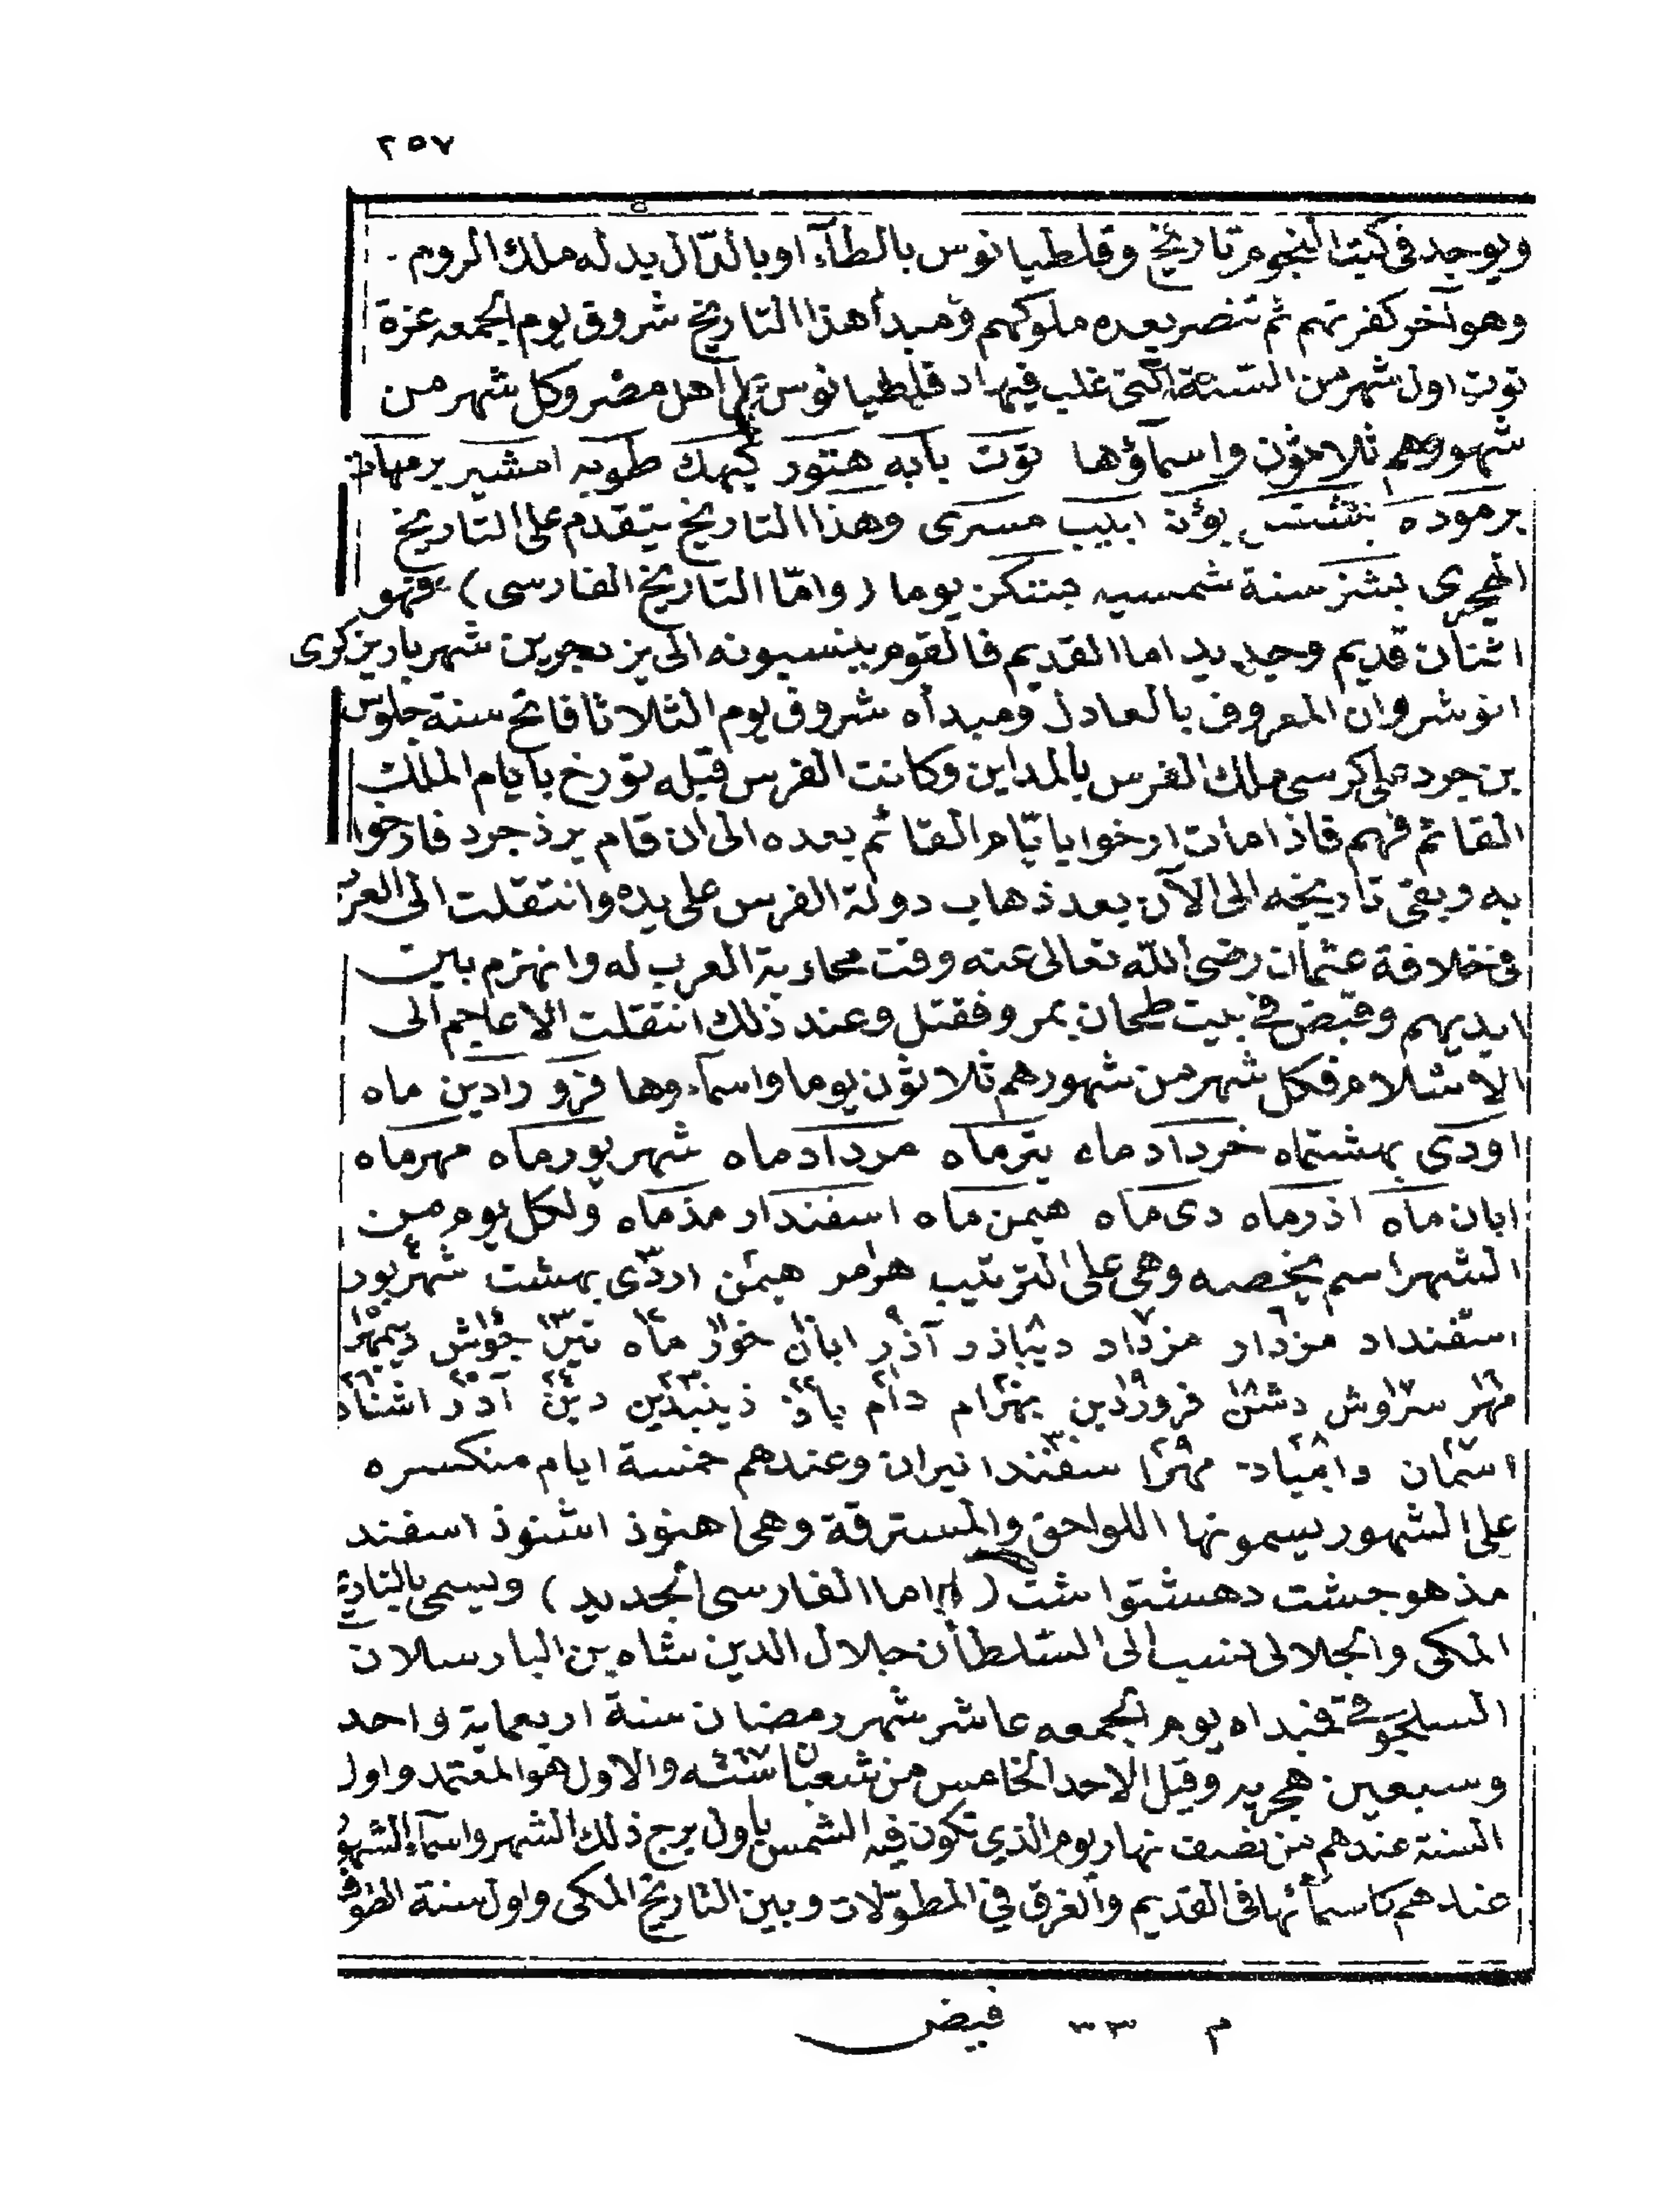 ٢٥٧
ويوجد في كتب النجوم تاريخ وقلطيانوس بالطآء او بالدّال بدله ملك الروم
وهو آخر كفرتهم ثم تنصر بعده ملوكهم ومبدأ هذا التاريخ شروق يوم الجمعه غرة
توت اول شهر من السنة التى غلب فيها دقلطيانوس على اهل مصر وكل شهر من
شهورهم ثلاثون واسمآؤها توت بابه هتور كيهك طوبه امشير برمهات
برموده بشنس بؤن ابيب مسرى وهذا التاريخ يتقدم على التاريخ
الهجرى بشنز سنة شمسيه يوما (وامّا التاريخ الفارسى) فهو
اثنان قديم وجديد اما القديم فالقوم ينسبونه الى يزدجرد بن شهريار بن كسرى
انوشروان المعروف بالعادل ومبدأه شروق يوم الثلاثا فاتح سنة جلوس
يزدجرد على كرسى ملك الفرس بالمداين وكانت الفرس قبله تورخ بايام الملك
القائم فهم فاذا مات ارخوا بايّام القائم بعده الى ان قام يزذجرد فارخوا
به وبقى تاريخه الى الآن بعد ذهاب دولة الفرس على يده وانتقلت الى العرب
فى خلافة عثمان رضى الله تعالى عنه وقت محاربة العرب له وانهزم بين
ايديهم وقبض في بيت طحان بمرو فقتل وعند ذلك انتقلت الاعاجم الى
الاسلام فكل شهر من شهورهم ثلاثون يوما واسماءوها فرو رادين ماه
اودى بهشتماه خرداد ماه يترماه مرداد ماه شهر يور ماه مهرماه
ابان ماه اذرماه دى ماه هيمن ماه اسفندار مذماه ولكل يوم من
الشهر اسم يخصه وهى على الترتيب هرمر هيمن اردى بهشت شهريور
اسفنداد مزدار مزداد ديباذر آذر ابان خور ماه تير جوش ديبمهر
مهر سروش دشن فروردين بهرام دام باذ ذينبدين دين آدر اشناد
اسمان وامياد مهرا سفندا نيران وعندهم خمسة ايام منكسره
على الشهور يسمونها اللواحق والمسترقة وهى اهنوذ اشنوذ اسفند
مذ هو جشت دهشتواشت (واما الفارسى الجديد) ويسمى بالتاريخ
المكى والجلالى نسب الى السلطان جلال الدين شاه بن البارسلان
السلجوقى فمبداه يوم الجمعه عاشر شهر رمضان سنة اربعماية واحد
وسبعين هجريه وقيل الاحد الخامس من شعبان سنة ٤٦٧ والاول هو المعتمد واول
السنة عندهم من نصف نهار يوم الذي تكون فيه الشمس باول برج ذلك الشهر واسمآء الشهور
عندهم كاسمائها فى القديم والفرق في المطوّلات وبين التاريخ المكى واول سنة الطو
م ٣٣ فيض